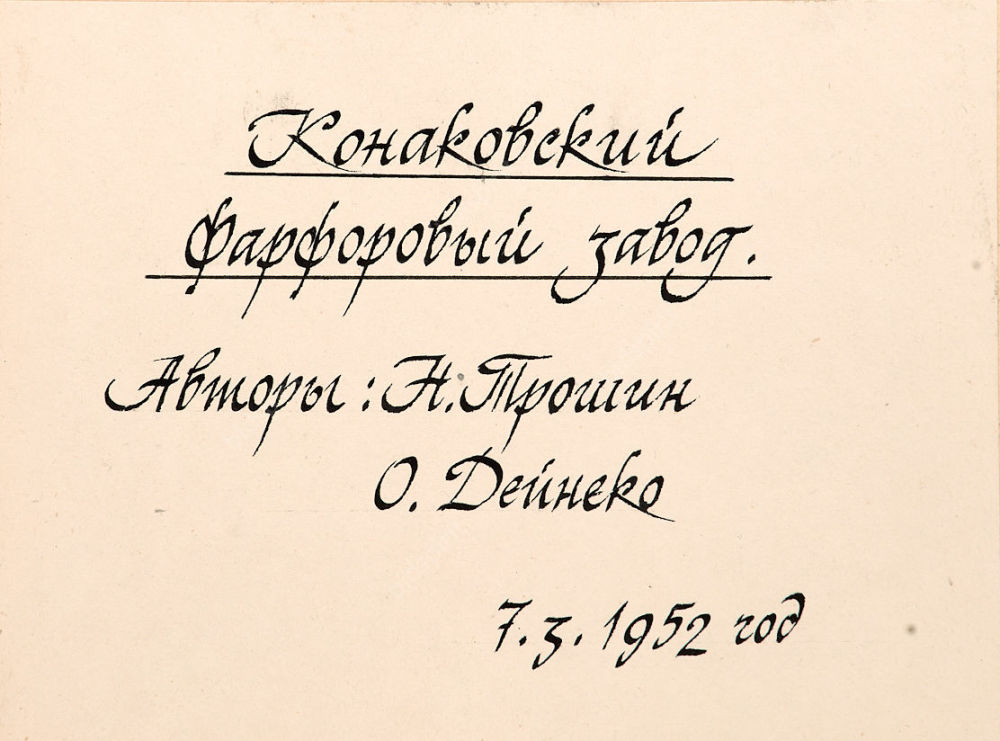 Конаковский
фарфоровый завод.
Авторы: Н. Трошин
О. Дейнеко
7.3.1952 год